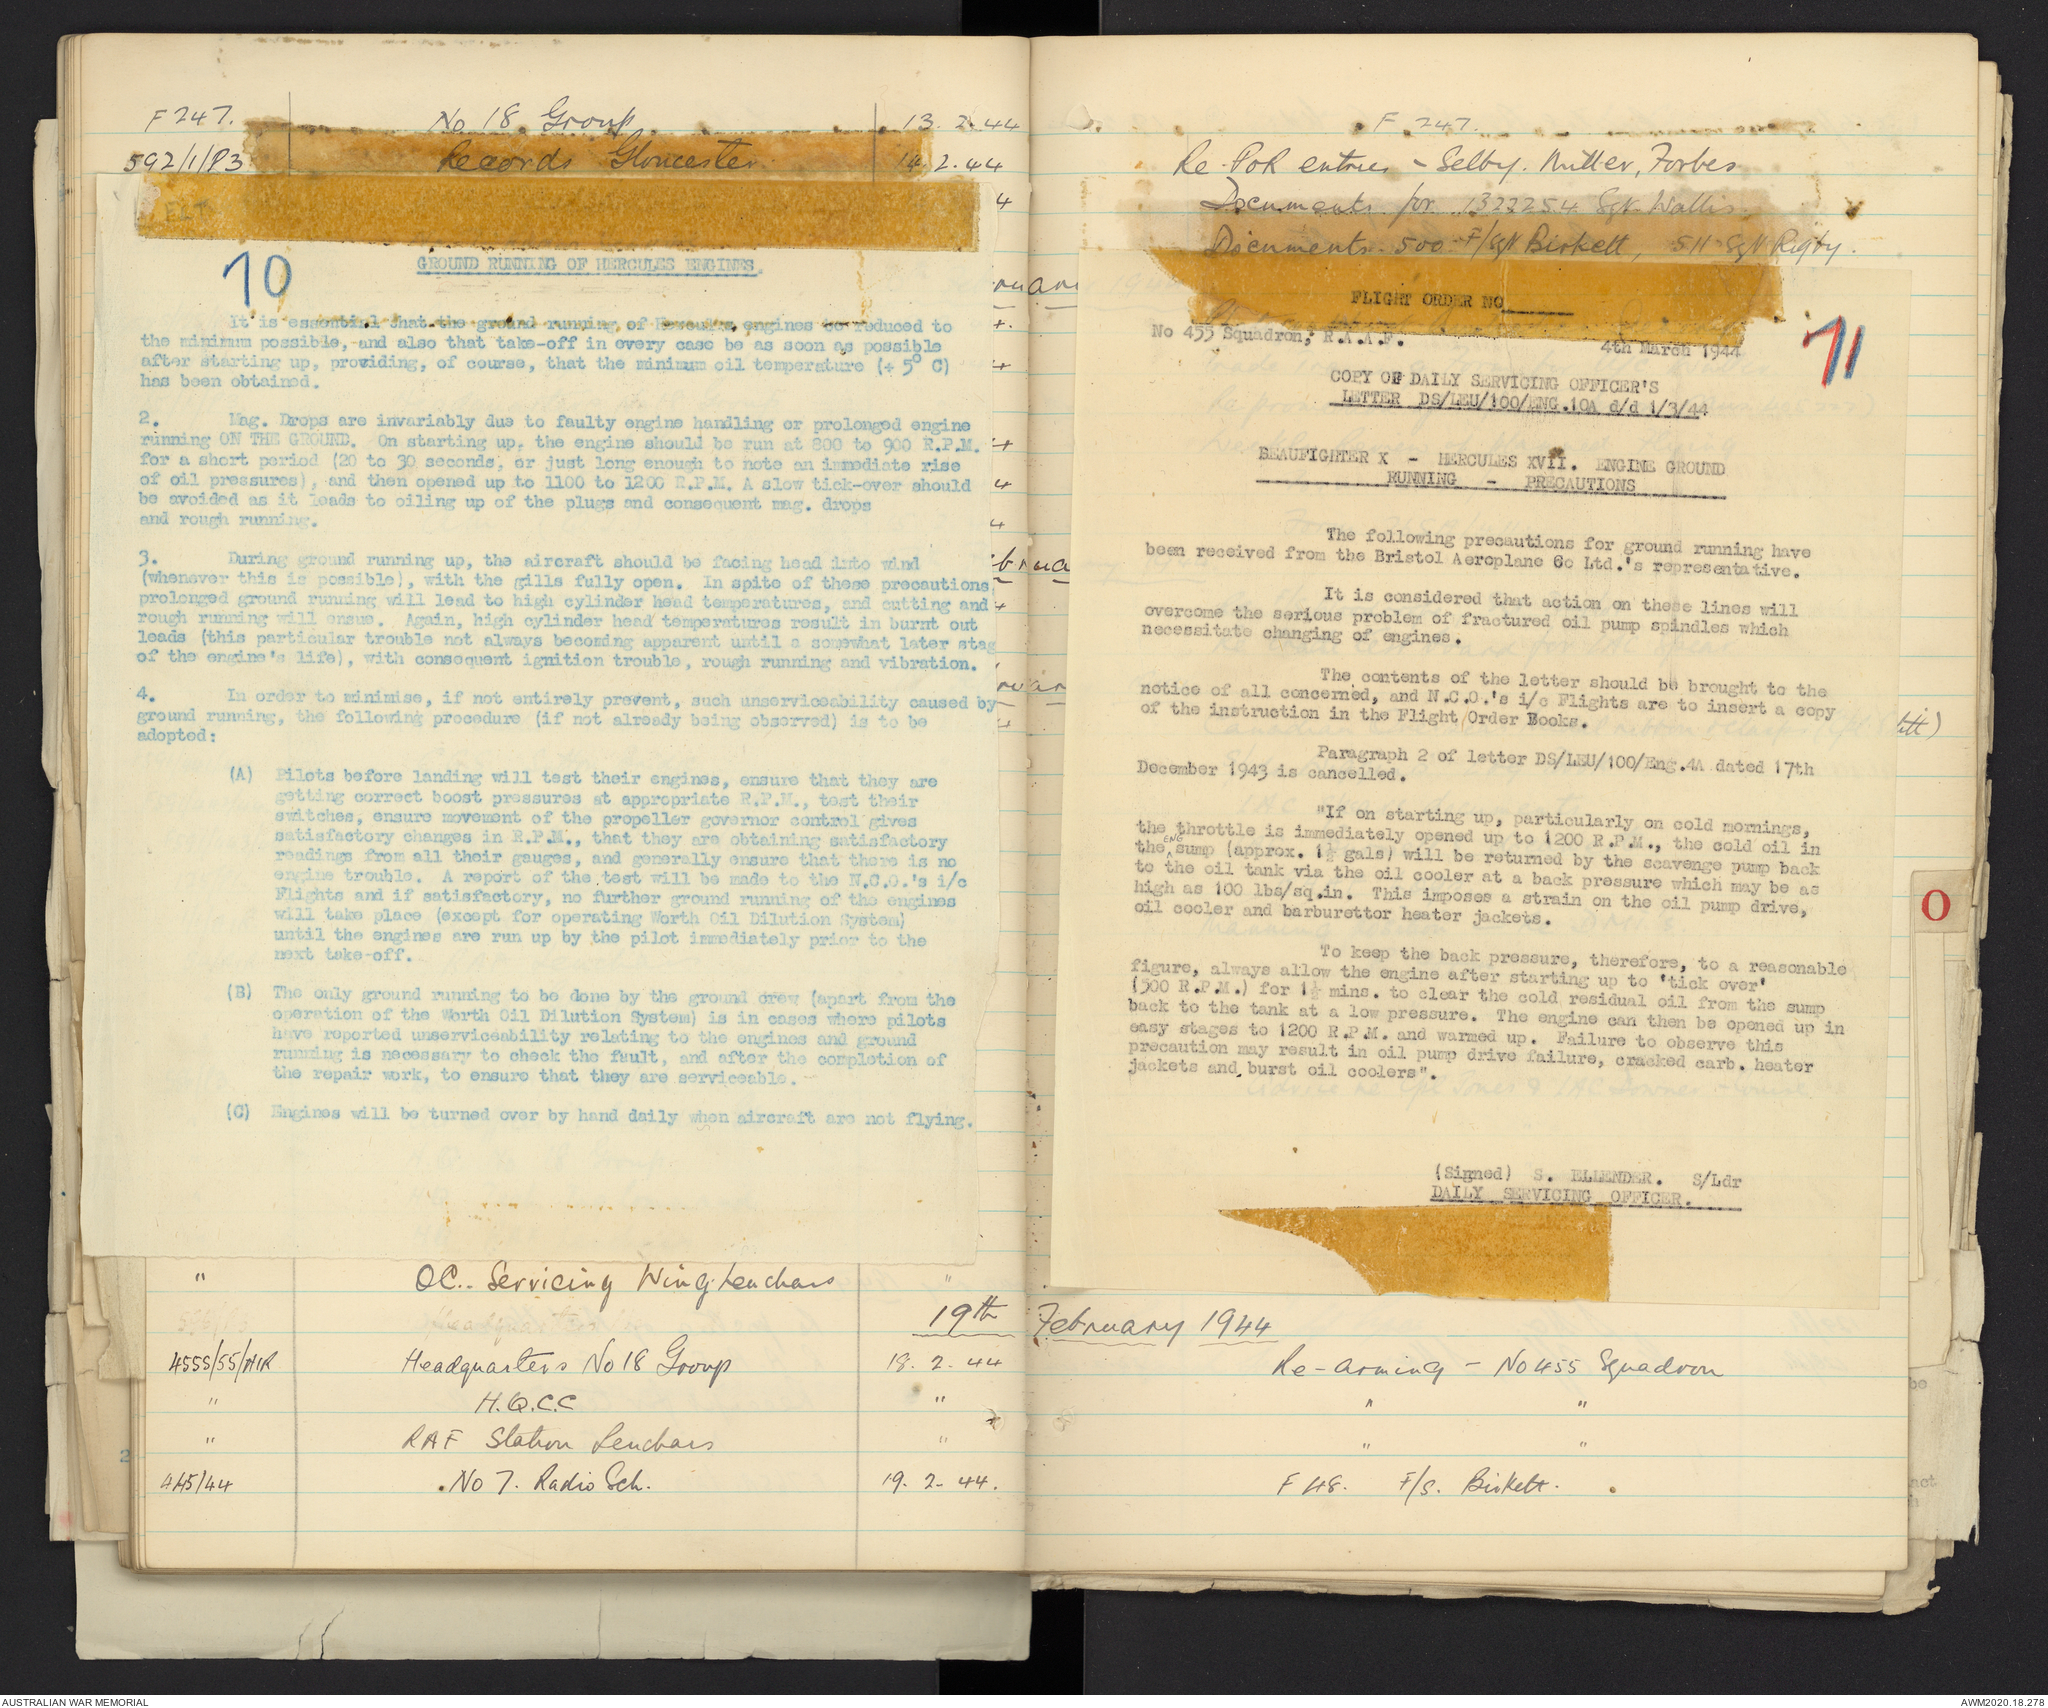 F 247. No 18 Group 13.2.44
592/1/P3 Records Gloucester 14.2.44
4
70
GROUND RUNNING OF HERCULES ENGINES
It is essential that the ground running of Hercules engines be reduced to
the minimum possible, and also that take-off in every case be as soon as possible
after starting up, providing, of course, that the minimum oil temperature (+ 5° C)
has been obtained.
2. Mag. Drops are invariably due to faulty engine handling or prolonged engine
running ON THE GROUND. On starting up, the engine should be run at 800 to 900 R.P.M.
for a short period (20 to 30 seconds, or just long enough to note an immediate rise
of oil pressures), and then opened up to 1100 to 1200 R.P.M. A slow tick-over should
be avoided as it leads to oiling up of the plugs and consequent mag. drops
and rough running.
3. During ground running up, the aircraft should be facing head into wind
(whenever this is possible), with the gills fully open. In spite of these precautions,
prolonged ground running will lead to high cylinder head temperatures, and cutting and
rough running will ensue. Again, high cylinder head temperatures result in burnt out
leads (this particular trouble not always becoming apparent until a somewhat later stag
of the engine's life), with consequent ignition trouble, rough running and vibration.
4. In order to minimise, if not entirely prevent, such unserviceability caused by
ground running, the following procedure (if not already being observed) is to be
adopted:
(A) Pilots before landing will test their engines, ensure that they are
getting correct boost pressures at appropriate R.P.M., test their
switches, ensure movement of the propeller governor control gives
satisfactory changes in R.P.M., that they are obtaining satisfactory
readings from all their gauges, and generally ensure that there is no
engine trouble. A report of the test will be made to the N.C.O.'s i/c
Flights and if satisfactory, no further ground running of the engines
will take place (except for operating Worth Oil Dilution System)
until the engines are run up by the pilot immediately prior to the
next take-off.
(B) The only ground running to be done by the ground crew (apart from the
operation of the Worth Oil Dilution System) is in cases where pilots
have reported unserviceability relating to the engines and ground
running is necessary to check the fault, and after the completion of
the repair work, to ensure that they are serviceable.
(C) Engines will be turned over by hand daily when aircraft are not flying.
" OC. Servicing Wing Leuchars "
19th February 1944
4555/55/AIR Headquarters No 18 Group 18.2.44 Re-arming - No 455 Squadron
" H.Q.C.C " " "
" RAF Station Leuchars " " "
445/44 No 7. Radio Sch. 19.2.44. F 48. F/S. Birkett.
F 247.
Re-PoR entries - Selby. Miller, Forbes
Documents for 1322254 Sgt Wallis
Documents - 500 F/Sgt Birkett, 511 Sgt Rigby.
FLIGHT ORDER NO
No 455 Squadron, R.A.A.F.
4th March 1944
71
COPY OF DAILY SERVICING OFFICER'S
LETTER DS/LEU/100/ENG.10A d/d 1/3/44
BEAUFIGHTER X - HERCULES XVII. ENGINE GROUND
RUNNING - PRECAUTIONS
The following precautions for ground running have
been received from the Bristol Aeroplane Co Ltd.'s representative.
It is considered that action on these lines will
overcome the serious problem of fractured oil pump spindles which
necessitate changing of engines.
The contents of the letter should be brought to the
notice of all concerned, and N.C.O.'s i/c Flights are to insert a copy
of the instruction in the Flight Order Books.
Paragraph 2 of letter DS/LEU/100/Eng.4A dated 17th
December 1943 is cancelled.
"If on starting up, particularly on cold mornings,
the throttle is immediately opened up to 1200 R.P.M., the cold oil in
the ENG sump (approx. 1½ gals) will be returned by the scavenge pump back
to the oil tank via the oil cooler at a back pressure which may be as
high as 100 lbs/sq.in. This imposes a strain on the oil pump drive,
oil cooler and barburettor heater jackets.
To keep the back pressure, therefore, to a reasonable
figure, always allow the engine after starting up to 'tick over'
(500 R.P.M.) for 1½ mins. to clear the cold residual oil from the sump
back to the tank at a low pressure. The engine can then be opened up in
easy stages to 1200 R.P.M. and warmed up. Failure to observe this
precaution may result in oil pump drive failure, cracked carb. heater
jackets and burst oil coolers".
(Signed) S. ELLENDER. S/Ldr
DAILY SERVICING OFFICER.
O
AUSTRALIAN WAR MEMORIAL
AWM2020.18.278